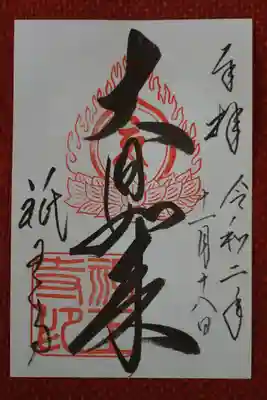 奉拝
令和二年
十一月十八日
大日如来
祇王寺
祇王
寺印